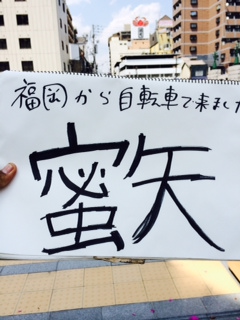 福岡から自転車で来まし
蜜矢